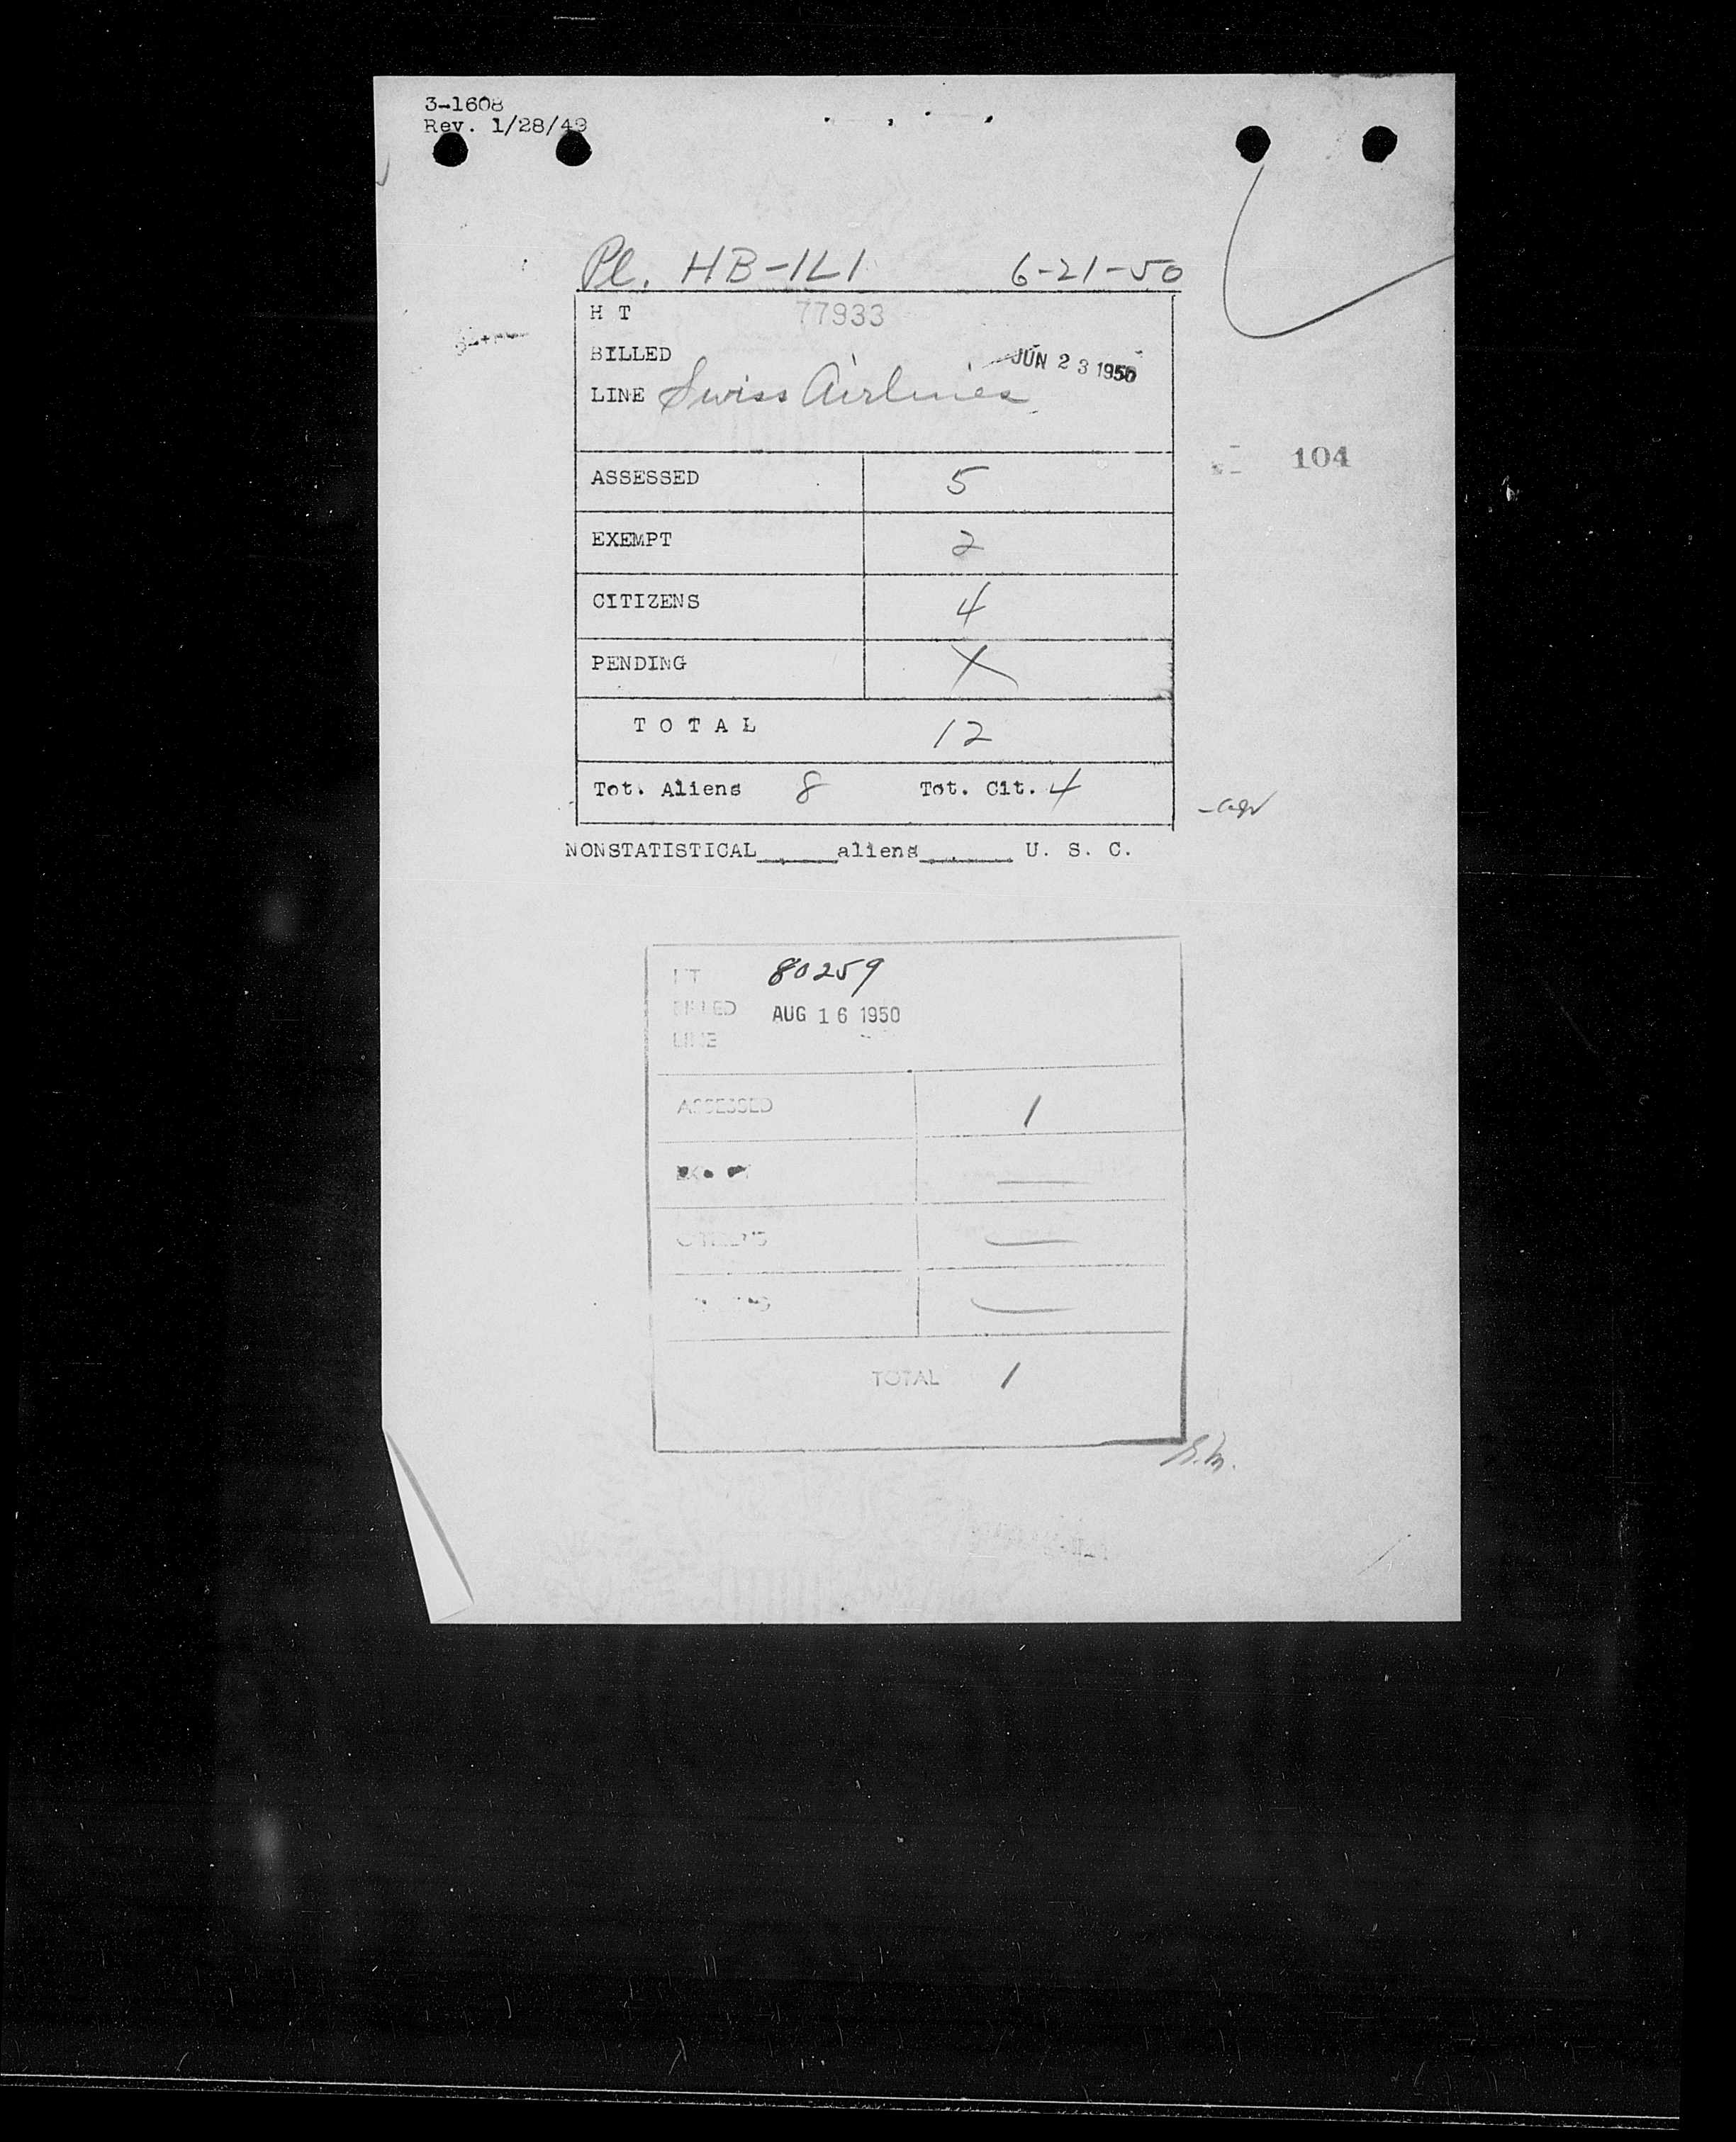 3-1608
Rev. 1/28/49
Pl. HB-ILI 6-21-50
H T 77933
BILLED
JUN 23 1950
LINE Swiss Airlines
104
ASSESSED 5
EXEMPT 2
CITIZENS 4
PENDING X
TOTAL 12
Tot. Aliens 8 Tot. Cit. 4
NONSTATISTICAL_____aliens______ U. S. C.
HT 80259
BILLED AUG 16 1950
LINE
ASSESSED 1
EXEMPT —
CITIZENS —
—
TOTAL 1